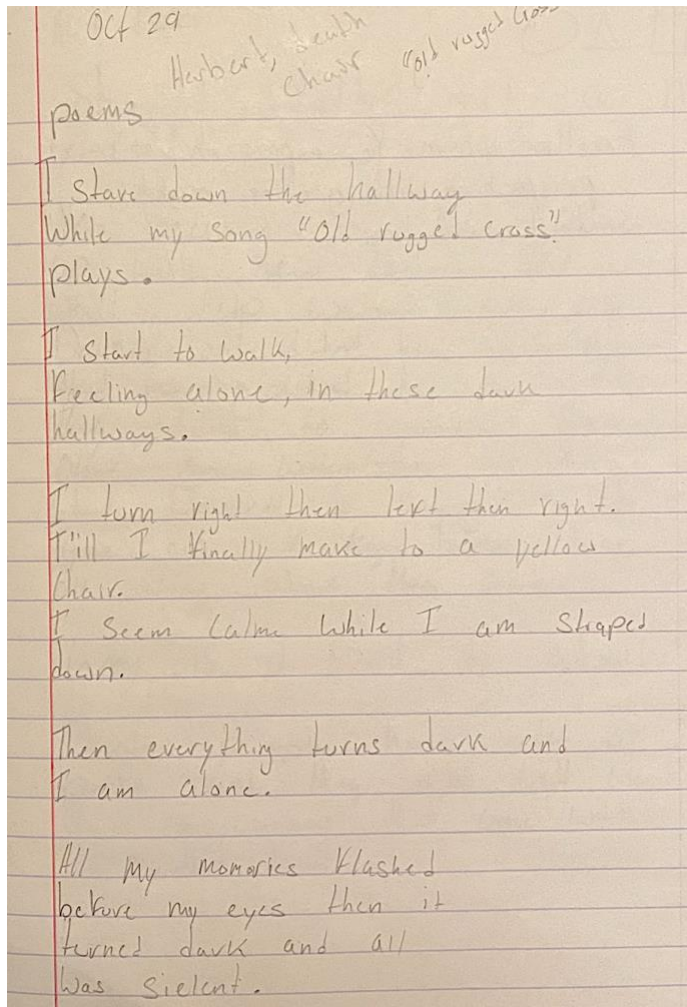 Oct 29
Herbert, death
Chair "old rugged cross
poems
I stare down the hallway
While my song "Old rugged cross"
plays.
I start to walk,
feeling alone, in these dark
hallways.
I turn right then left then right.
T'ill I finally make to a yellow
Chair.
I seem calme while I am straped
down.
Then everything turns dark and
I am alone.
All my momories flashed
before my eyes then it
turned dark and all
was sielent.